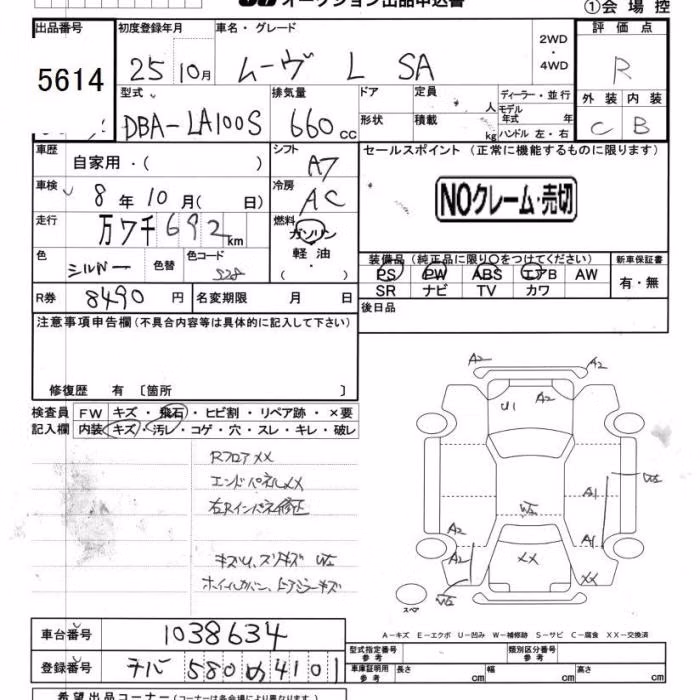 オークション出品申込書
①会場控
出品番号 初度登録年月 車名・グレード 2WD・4WD 評価点
5614 25 10月 ムーヴ L SA R
型式 排気量 ドア 定員 人 ディーラー・並行 外装 内装
DBA-LA100S 660cc 形状 積載 kg モデル年式 年 ハンドル 左・右 C B
車歴 自家用・( ) シフト A7 セールスポイント (正常に機能するものに限ります)
車検 8年10月( 日) 冷房 AC NOクレーム・売切
走行 万7千692km 燃料 ガソリン・軽油・( )
色 シルバー 色替 色コード S28
装備品 (純正品に限り〇をつけてください) 新車保証書
PS PW ABS エアB AW 有・無
SR ナビ TV カワ
R券 8490円 名変期限 月 日 後日品
注意事項申告欄 (不具合内容等は具体的に記入して下さい)
修復歴 有 〔箇所 〕
検査員記入欄 FW キズ・飛石・ヒビ割・リペア跡・×要
内装 キズ・汚レ・コゲ・穴・スレ・キレ・破レ
RフロアXX
エンドパネルXX
右Rインパネ修正
A2 A2
U1 A2
A1 W2
W2
A2 A1
XX XX
W2
スペア
A-キズ E-エクボ U-凹み W-補修跡 S-サビ C-腐食 XX-交換済
車台番号 1038634
型式指定番号 参考 類別区分番号 参考
登録番号 チバ 580 め 4101
車庫証明用 参考 長さ cm 幅 cm 高さ cm
希望出品コーナー (コーナーは各会場により異なります)